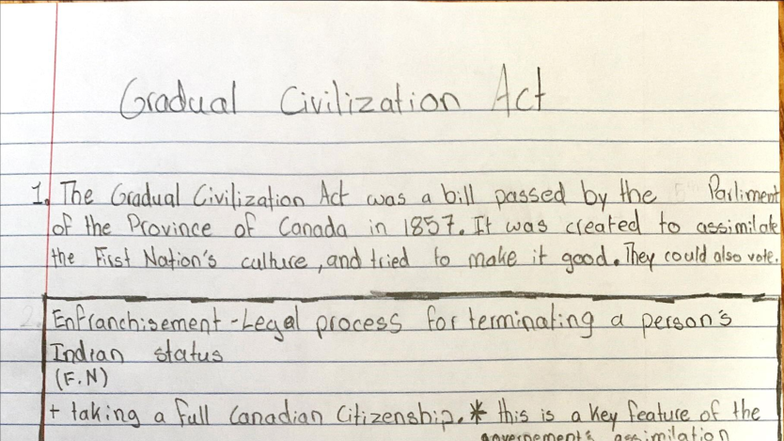 Gradual Civilization Act
1. The Gradual Civilization Act was a bill passed by the Parliment
of the Province of Canada in 1857. It was created to assimilate
the First Nation's culture, and tried to make it good. They could also vote.
Enfranchisement - Legal process for terminating a person's
Indian status
(F.N)
+ taking a full Canadian Citizenship. * this is a key feature of the
governement's assimilation